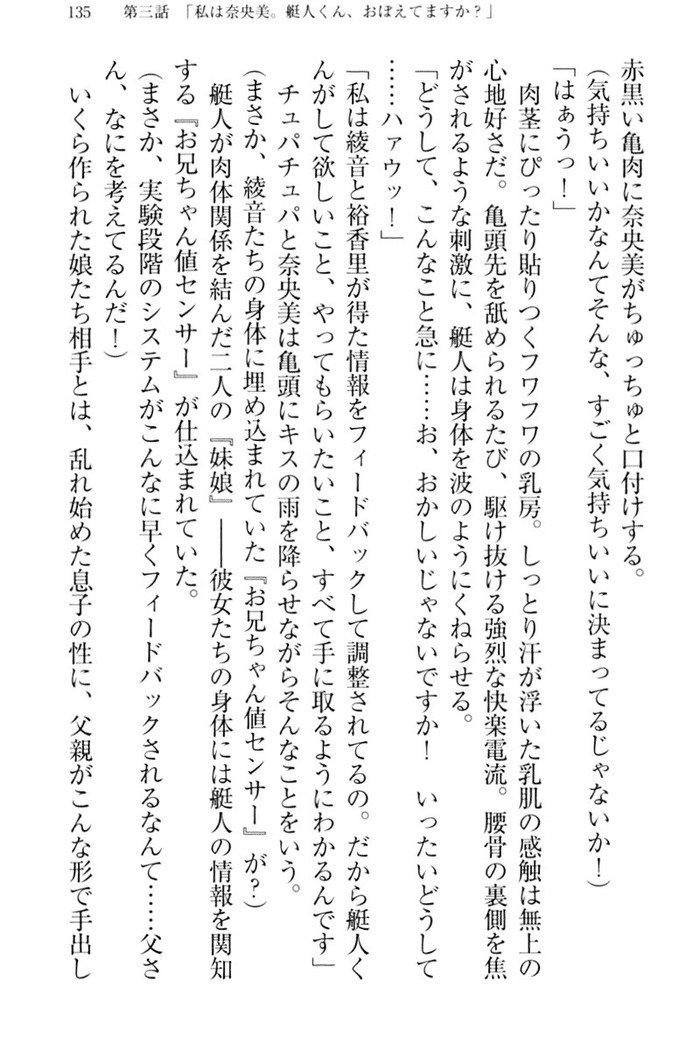 135 第三話 「私は奈央美。艇人くん、おぼえてますか?」
赤黒い亀肉に奈央美がちゅっちゅと口付けする。
(気持ちいいかなんてそんな、すごく気持ちいいに決まってるじゃないか!)
「はぁうっ!」
肉茎にぴったり貼りつくフワフワの乳房。しっとり汗が浮いた乳肌の感触は無上の
心地好さだ。亀頭先を舐められるたび、駆け抜ける強烈な快楽電流。腰骨の裏側を焦
がされるような刺激に、艇人は身体を波のようにくねらせる。
「どうして、こんなこと急に……お、おかしいじゃないですか! いったいどうして
……ハァウッ!」
「私は綾音と裕香里が得た情報をフィードバックして調整されてるの。だから艇人く
んがして欲しいこと、やってもらいたいこと、すべて手に取るようにわかるんです」
チュパチュパと奈央美は亀頭にキスの雨を降らせながらそんなことをいう。
(まさか、綾音たちの身体に埋め込まれていた『お兄ちゃん値センサー』が?)
艇人が肉体関係を結んだ二人の『妹娘』――彼女たちの身体には艇人の情報を関知
する『お兄ちゃん値センサー』が仕込まれていた。
(まさか、実験段階のシステムがこんなに早くフィードバックされるなんて……父さ
ん、なにを考えてるんだ!)
いくら作られた娘たち相手とは、乱れ始めた息子の性に、父親がこんな形で手出し